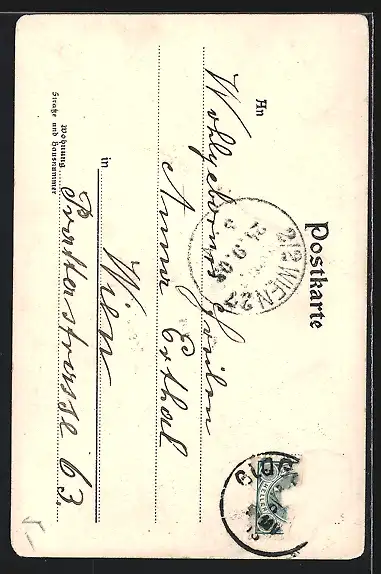 Postkarte
An
Wohlgebornes Fräulein
Anna Erthal
in Wien
Wohnung
Straße und Hausnummer
Praterstrasse 63
2/2 WIEN 27